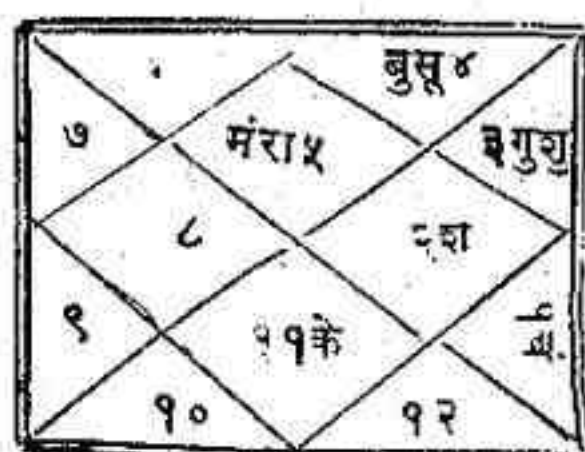 बुसू ४
७
मंरा ५
३ गुशु
८
२श
९
११के
१०
१२